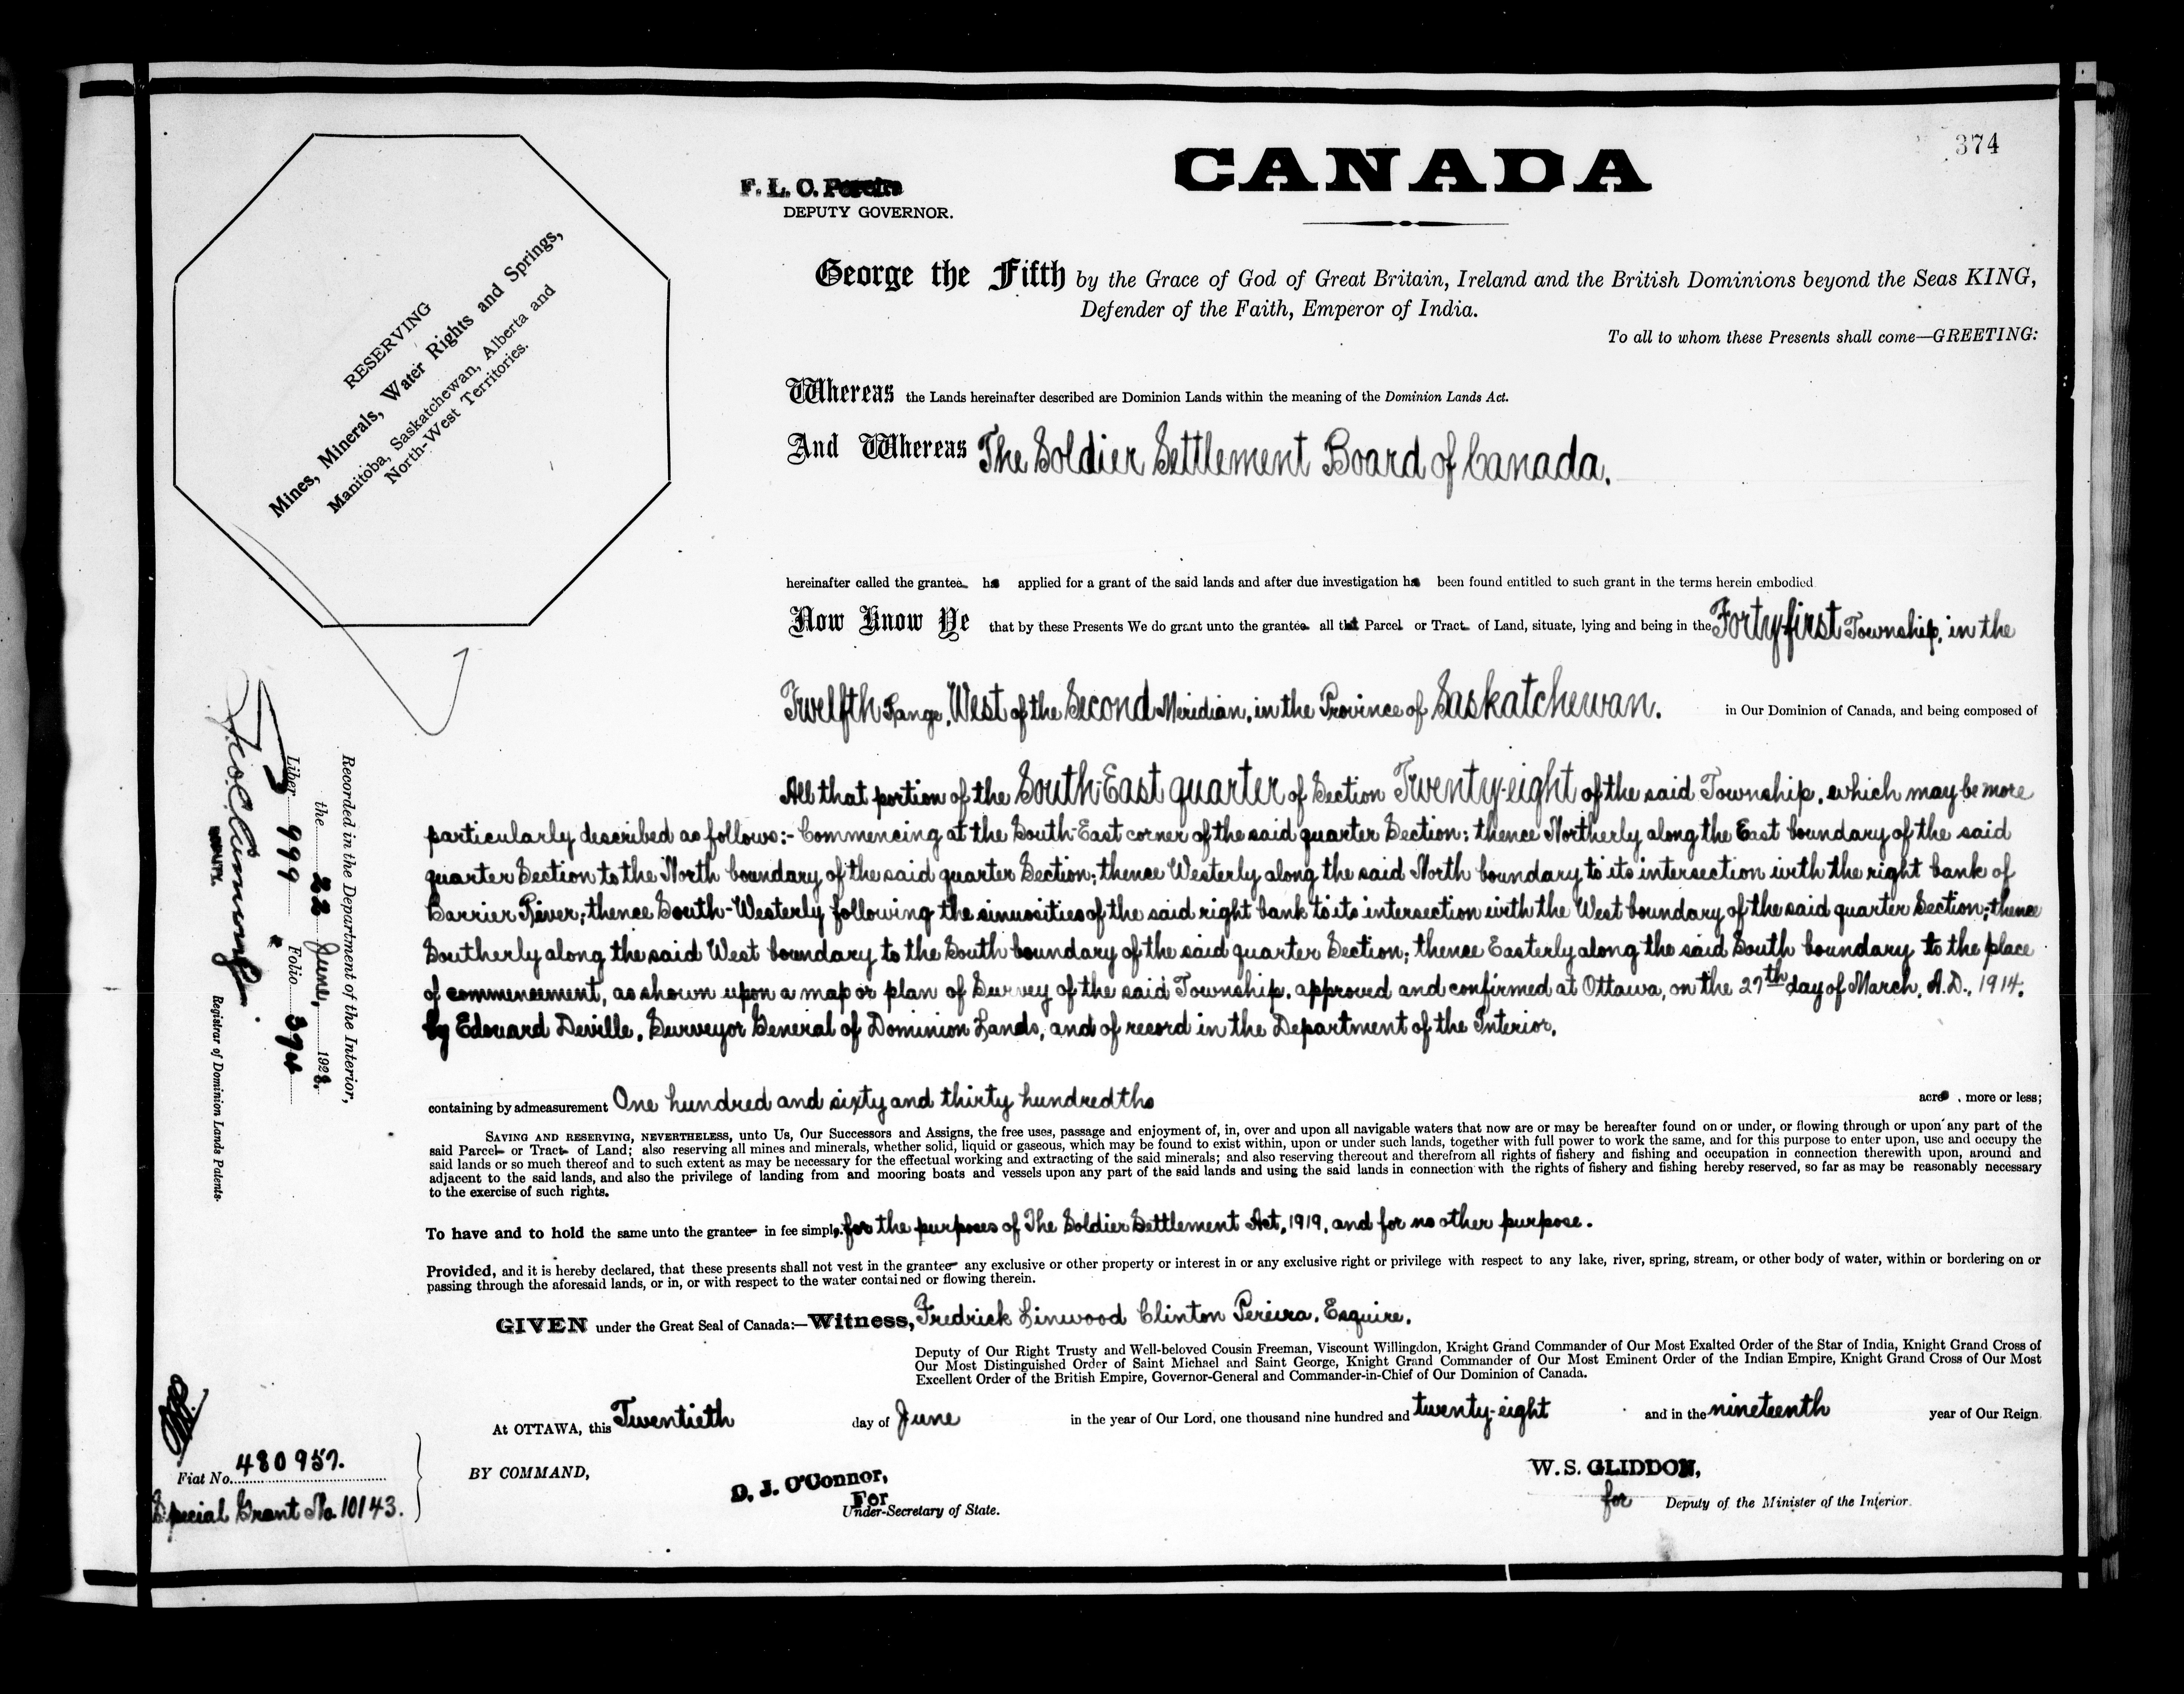 374
CANADA
F. L. O. Pereira
DEPUTY GOVERNOR.
RESERVING
Mines, Minerals, Water Rights and Springs,
Manitoba, Saskatchewan, Alberta and
North-West Territories.
George the Fifth by the Grace of God of Great Britain, Ireland and the British Dominions beyond the Seas KING,
Defender of the Faith, Emperor of India.
To all to whom these Presents shall come—GREETING:
Whereas the Lands hereinafter described are Dominion Lands within the meaning of the Dominion Lands Act.
And Whereas The Soldier Settlement Board of Canada.
hereinafter called the grantee has applied for a grant of the said lands and after due investigation has been found entitled to such grant in the terms herein embodied.
Now Know Ye that by these Presents We do grant unto the grantee all that Parcel or Tract of Land, situate, lying and being in the Forty-first Township, in the
Twelfth Range, West of the Second Meridian, in the Province of Saskatchewan. in Our Dominion of Canada, and being composed of
All that portion of the South-East quarter of Section Twenty-eight of the said Township, which may be more
particularly described as follows:- Commencing at the South-East corner of the said quarter Section; thence Northerly along the East boundary of the said
quarter Section to the North boundary of the said quarter Section; thence Westerly along the said North boundary to its intersection with the right bank of
Barrier River; thence South-Westerly following the sinuosities of the said right bank to its intersection with the West boundary of the said quarter Section; thence
Southerly along the said West boundary to the South boundary of the said quarter Section; thence Easterly along the said South boundary to the place
of commencement, as shown upon a map or plan of Survey of the said Township, approved and confirmed at Ottawa, on the 27th day of March, A.D., 1914,
by Edouard Deville, Surveyor General of Dominion Lands, and of record in the Department of the Interior.
containing by admeasurement One hundred and sixty and thirty hundredths acres, more or less;
SAVING AND RESERVING, NEVERTHELESS, unto Us, Our Successors and Assigns, the free uses, passage and enjoyment of, in, over and upon all navigable waters that now are or may be hereafter found on or under, or flowing through or upon any part of the
said Parcel or Tract of Land; also reserving all mines and minerals, whether solid, liquid or gaseous, which may be found to exist within, upon or under such lands, together with full power to work the same, and for this purpose to enter upon, use and occupy the
said lands or so much thereof and to such extent as may be necessary for the effectual working and extracting of the said minerals; and also reserving thereout and therefrom all rights of fishery and fishing and occupation in connection therewith upon, around and
adjacent to the said lands, and also the privilege of landing from and mooring boats and vessels upon any part of the said lands and using the said lands in connection with the rights of fishery and fishing hereby reserved, so far as may be reasonably necessary
to the exercise of such rights.
To have and to hold the same unto the grantee in fee simple, for the purposes of The Soldier Settlement Act, 1919, and for no other purpose.
Provided, and it is hereby declared, that these presents shall not vest in the grantee any exclusive or other property or interest in or any exclusive right or privilege with respect to any lake, river, spring, stream, or other body of water, within or bordering on or
passing through the aforesaid lands, or in, or with respect to the water contained or flowing therein.
GIVEN under the Great Seal of Canada:—Witness, Fredrick Linwood Clinton Pereira, Esquire,
Deputy of Our Right Trusty and Well-beloved Cousin Freeman, Viscount Willingdon, Knight Grand Commander of Our Most Exalted Order of the Star of India, Knight Grand Cross of
Our Most Distinguished Order of Saint Michael and Saint George, Knight Grand Commander of Our Most Eminent Order of the Indian Empire, Knight Grand Cross of Our Most
Excellent Order of the British Empire, Governor-General and Commander-in-Chief of Our Dominion of Canada.
At OTTAWA, this Twentieth day of June in the year of Our Lord, one thousand nine hundred and twenty-eight and in the nineteenth year of Our Reign.
BY COMMAND,
D. J. O'Connor,
For
Under-Secretary of State.
W. S. GLIDDON,
for Deputy of the Minister of the Interior.
Recorded in the Department of the Interior,
the 22 June, 1928.
Liber 999 Folio 374
DEPUTY. Registrar of Dominion Lands Patents.
Fiat No. 480957.
Special Grant No. 10143.